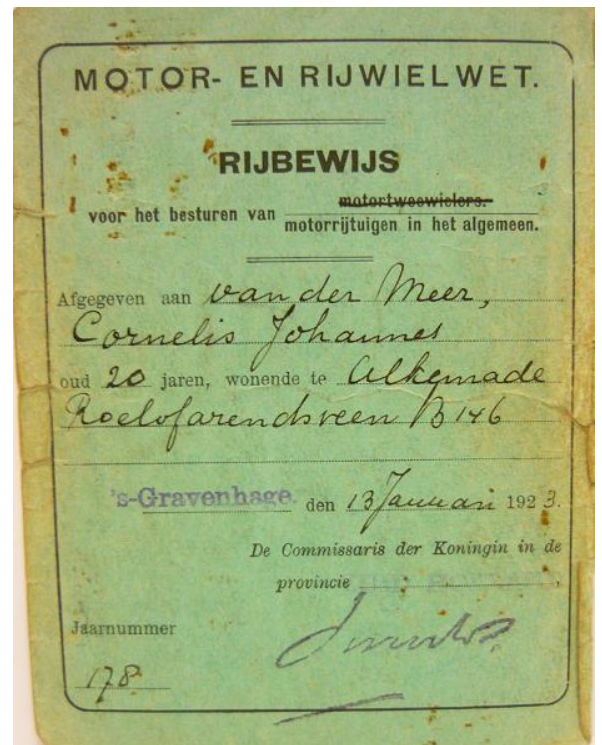 MOTOR- EN RIJWIELWET.
RIJBEWIJS
motortweewielers.
voor het besturen van motorrijtuigen in het algemeen.
Afgegeven aan van der Meer,
Cornelis Johannes
oud 20 jaren, wonende te Alkemade
Roelofarendsveen B 146
's-Gravenhage. den 13 Januari 1923.
De Commissaris der Koningin in de
provincie
Jaarnummer
178